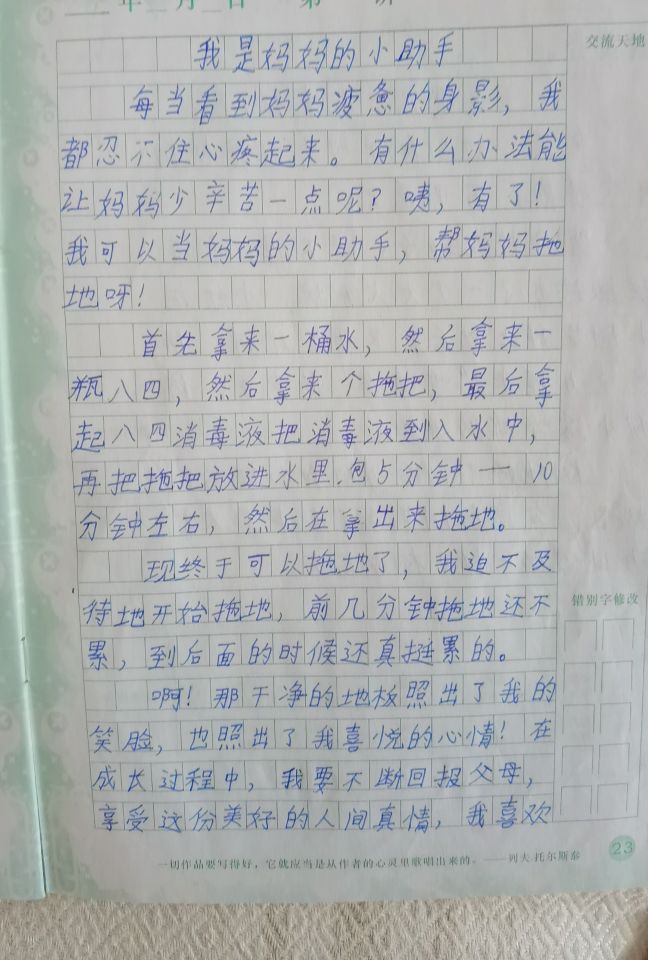 年 月 日 第 讲
交流天地
我是妈妈的小助手
每当看到妈妈疲惫的身影，我
都忍不住心疼起来。有什么办法能
让妈妈少辛苦一点呢？咦，有了！
我可以当妈妈的小助手，帮妈妈拖
地呀！
首先拿来一桶水，然后拿来一
瓶八四，然后拿来个拖把，最后拿
起八四消毒液把消毒液到入水中，
再把拖把放进水里.包5分钟一10
分钟左右，然后在拿出来拖地。
现终于可以拖地了，我迫不及
待地开始拖地，前几分钟拖地还不
累，到后面的时候还真挺累的。
啊！那干净的地板照出了我的
笑脸，也照出了我喜悦的心情！在
成长过程中，我要不断回报父母，
享受这份美好的人间真情，我喜欢
错别字修改
一切作品要写得好，它就应当是从作者的心灵里歌唱出来的。——列夫.托尔斯泰
23